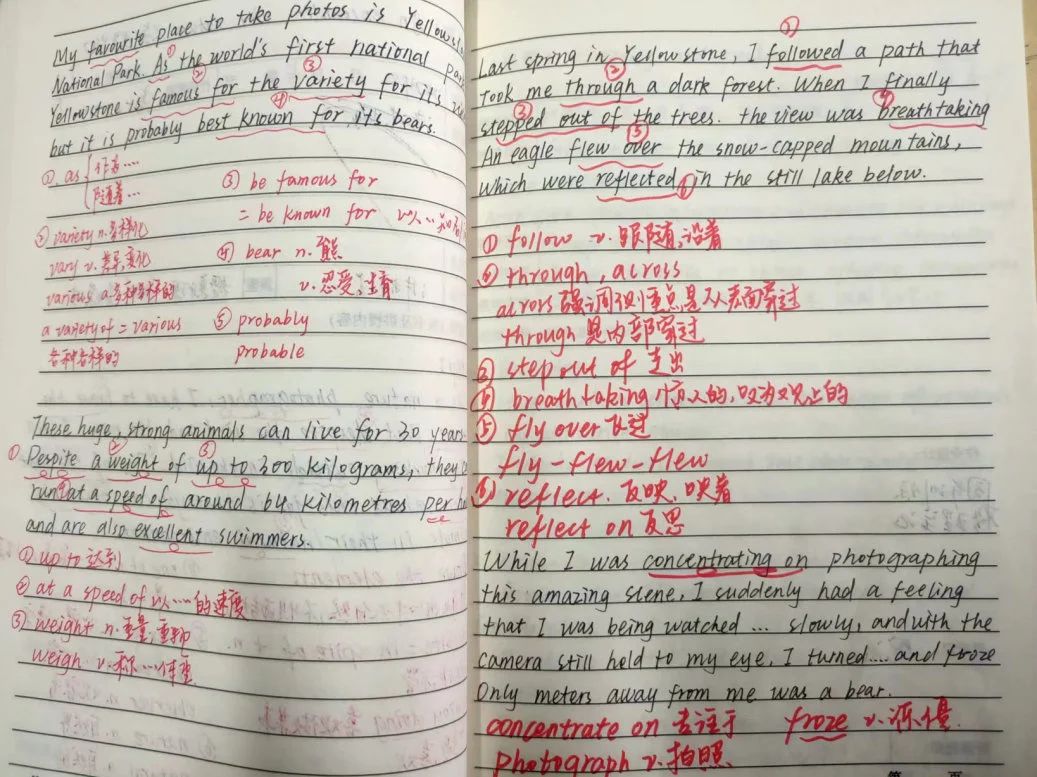 My favourite place to take photos is Yellowst
National Park. As the world's first national pa
Yellowstone is famous for the variety for its
but it is probably best known for its bears.
① as { 作为....
随着...
② variety n.多样化
vary v.差异,变化
various a.各种各样的
a variety of = various
各种各样的
③ be famous for
= be known for 以...知名
④ bear n.熊
v.忍受,生育
⑤ probably
probable
These huge, strong animals can live for 30 years.
Despite a weight of up to 300 kilograms, they c
run at a speed of around 64 kilometres per h
and are also excellent swimmers.
① up to 达到
② at a speed of 以....的速度
③ weight n.重量,重物
weigh v.称...重量
Last spring in Yellowstone, I followed a path that
took me through a dark forest. When I finally
stepped out of the trees. the view was breathtaking
An eagle flew over the snow-capped mountains,
which were reflected in the still lake below.
① follow v.跟随,沿着
② through, across
across强调侧重点是从表面穿过
through是内部穿过
③ step out of 走出
④ breathtaking 惊人的,叹为观止的
⑤ fly over 飞过
fly-flew-flew
⑥ reflect. 反映,映着
reflect on 反思
While I was concentrating on photographing
this amazing scene, I suddenly had a feeling
that I was being watched ... slowly, and with the
camera still held to my eye, I turned.... and froze
Only meters away from me was a bear.
concentrate on 专注于 froze v.
photograph v.拍照